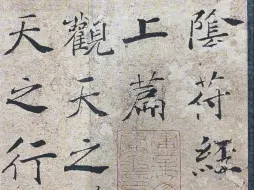 陰符経
上篇
觀天之
天之行